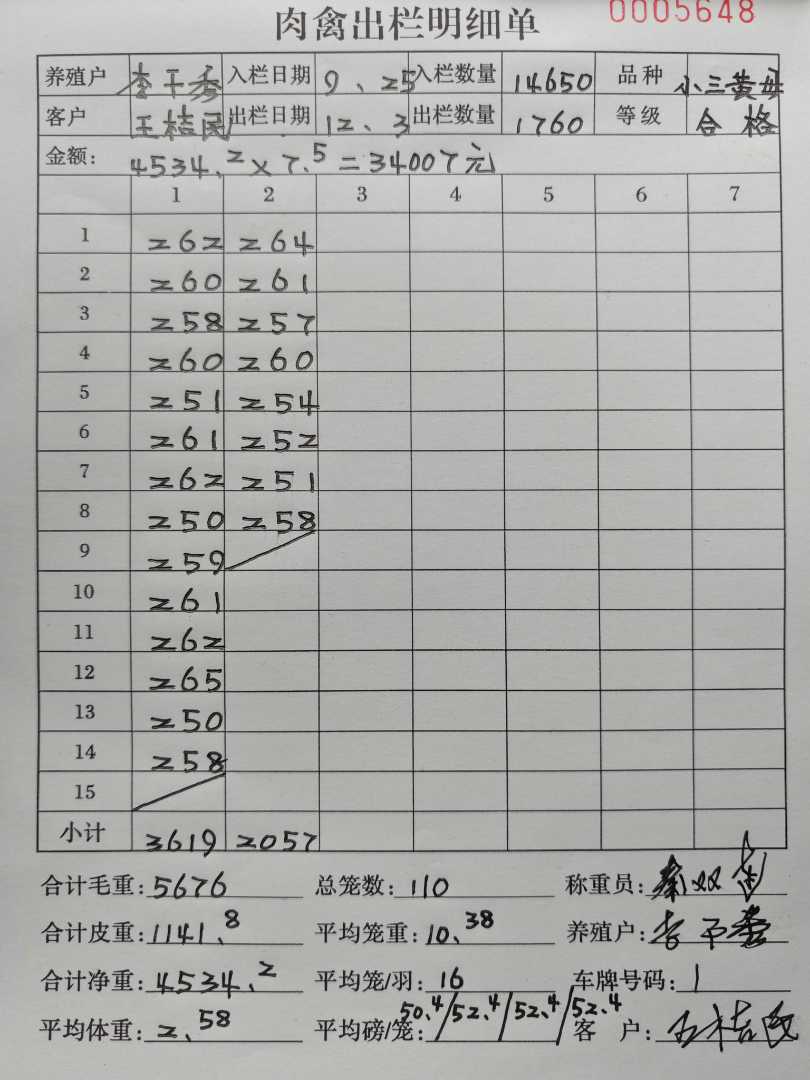 肉禽出栏明细单 0005648
养殖户 李干秀 入栏日期 9、25 入栏数量 14650 品种 小三黄母
客户 王桔民 出栏日期 12、3 出栏数量 1760 等级 合格
金额: 4534.2×7.5=34007元
1 2 3 4 5 6 7
1 262 264
2 260 261
3 258 257
4 260 260
5 251 254
6 261 252
7 262 251
8 250 258
9 259
10 261
11 262
12 265
13 250
14 258
15
小计 3619 2057
合计毛重: 5676 总笼数: 110 称重员:
合计皮重: 1141.8 平均笼重: 10.38 养殖户:
合计净重: 4534.2 平均笼/羽: 16 车牌号码: 1
平均体重: 2.58 平均磅/笼: 50.4/52.4/52.4/52.4 客 户: 王桔民